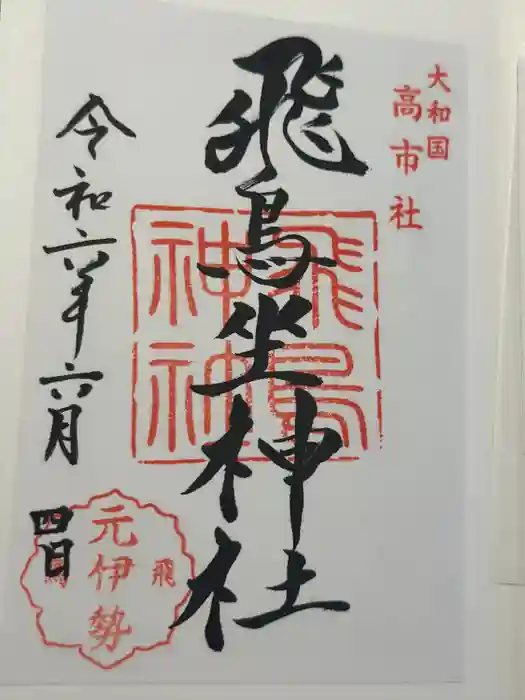 大和国
高市社
飛鳥坐神社
飛鳥
神社
令和六年六月
四日
元伊勢
飛